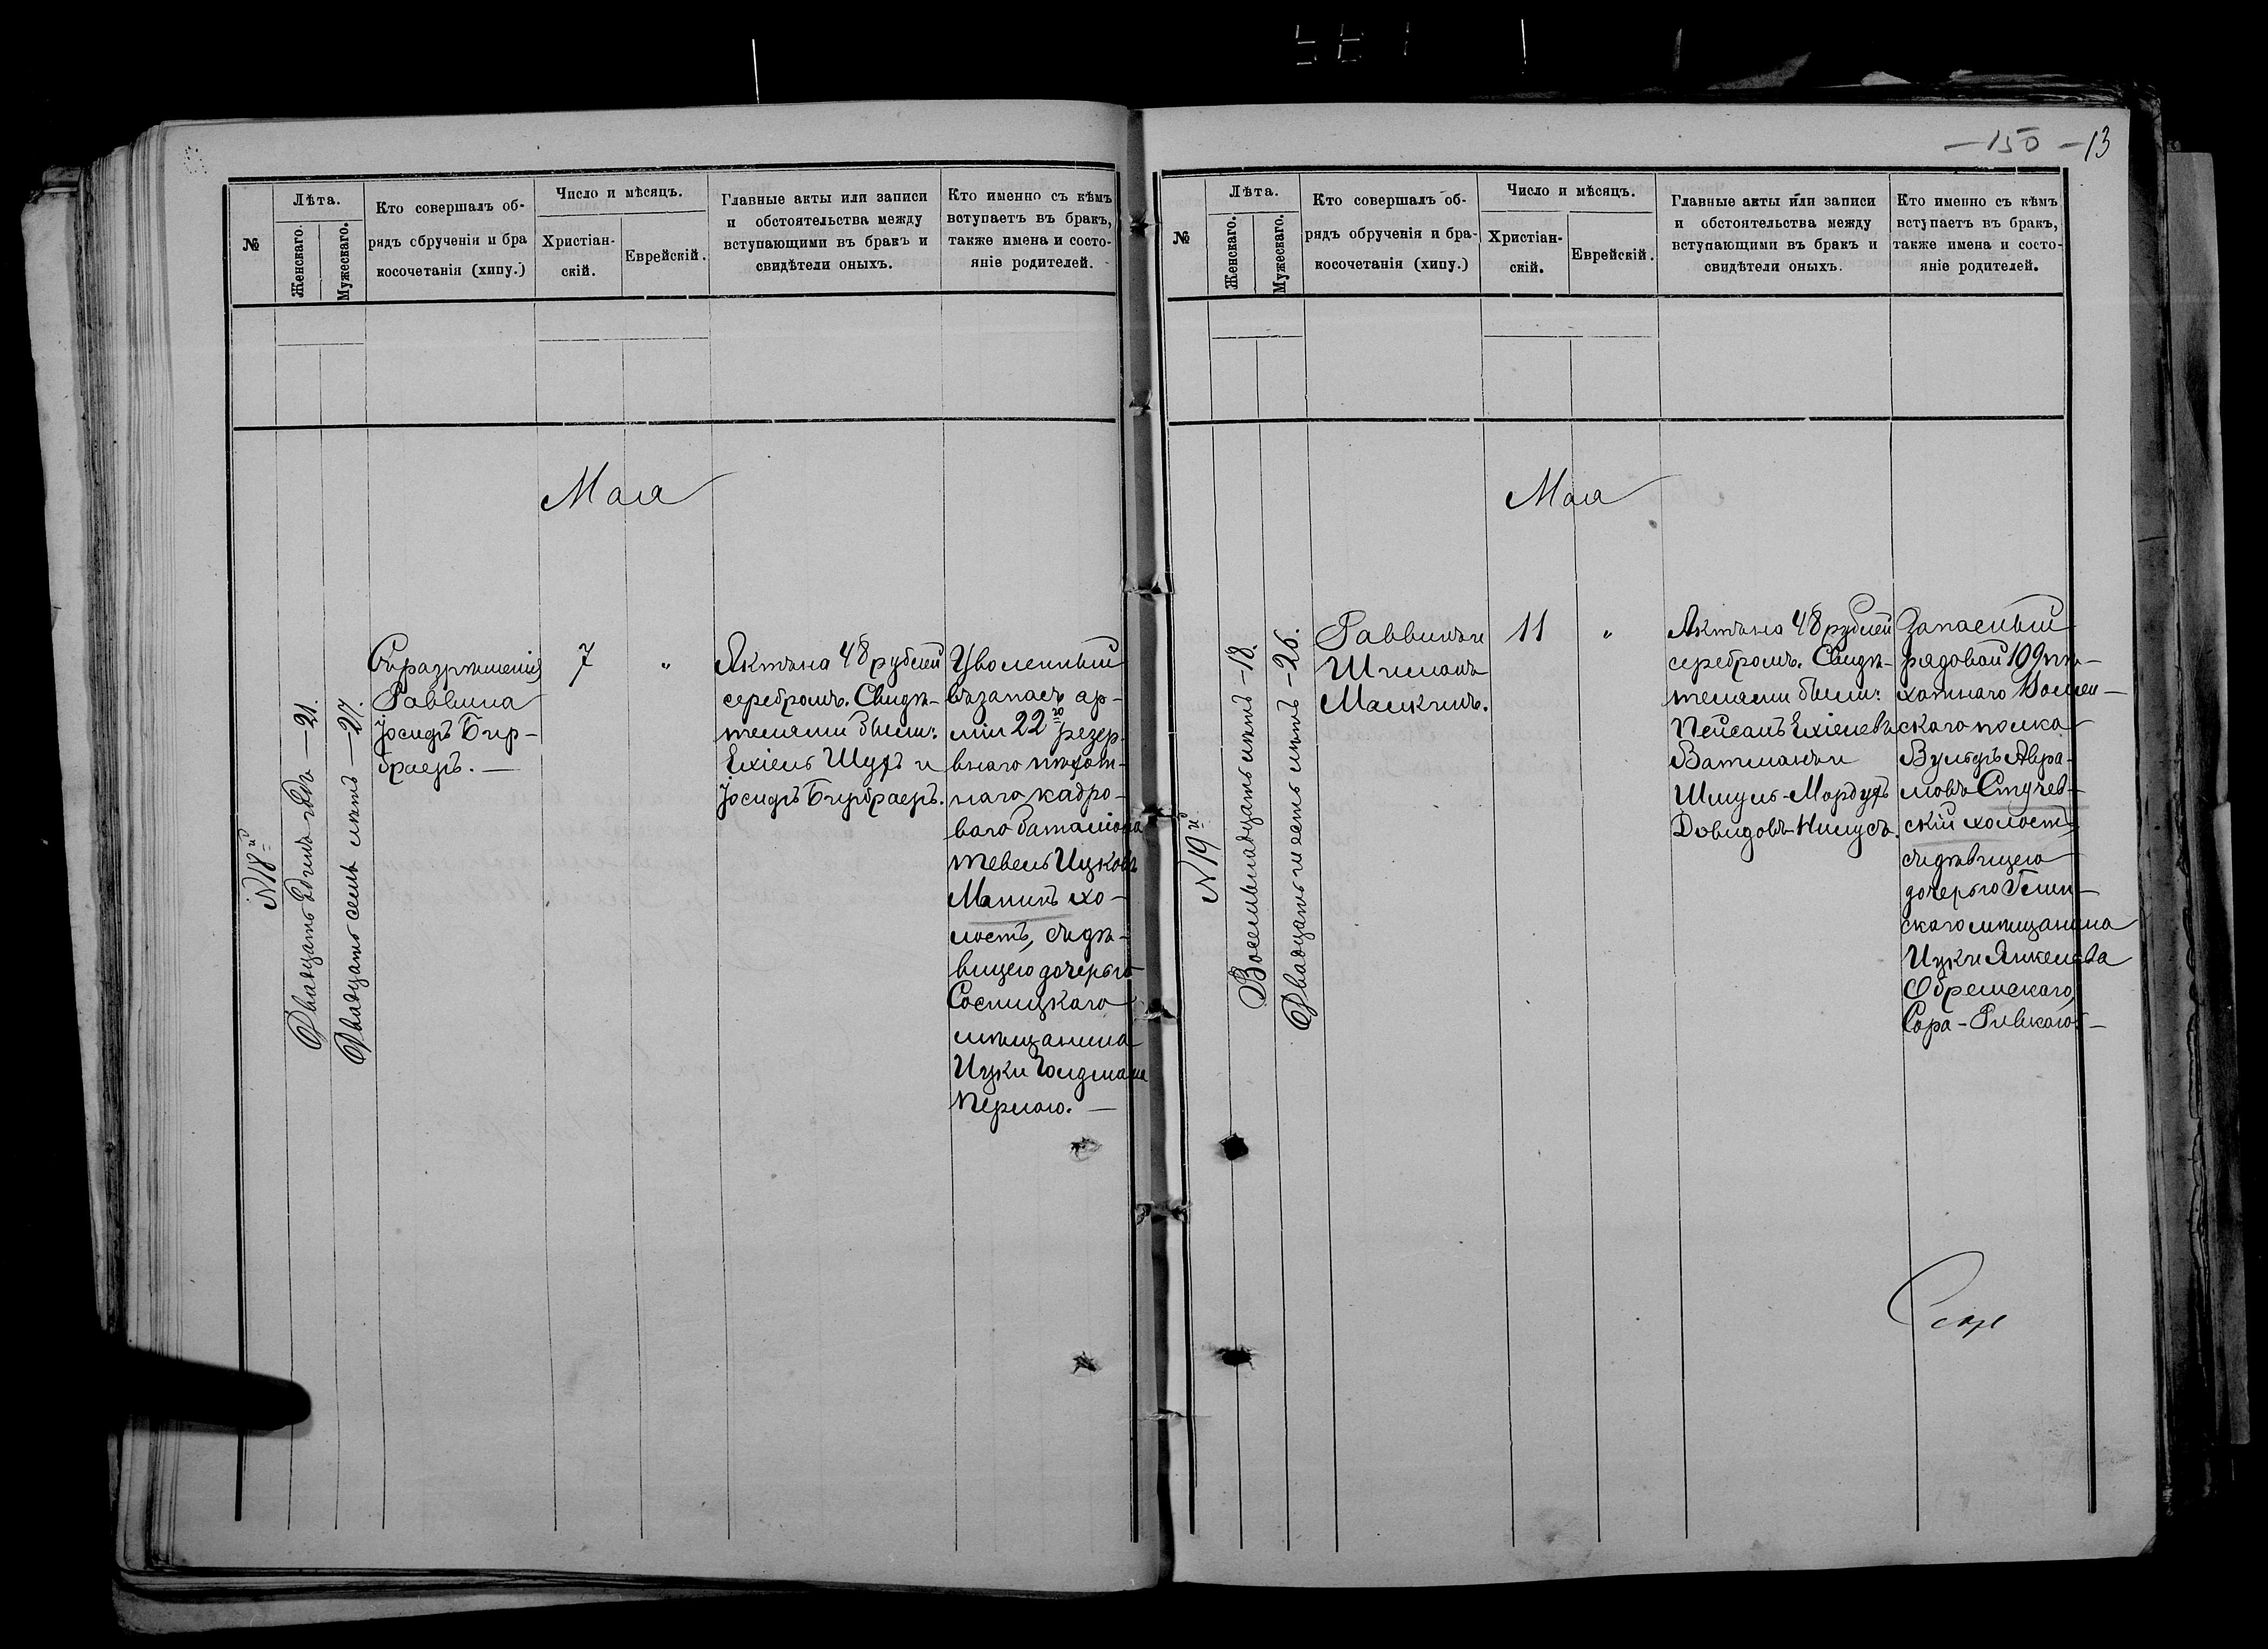 №
Лѣта.
Женскаго.
Мужескаго.
Кто совершалъ об-
рядъ обрученія и бра
косочетанія (хипу.)
Число и мѣсяцъ.
Христіан-
скій.
Еврейскій.
Главные акты или записи
и обстоятельства между
вступающими въ бракъ и
свидѣтели оныхъ.
Кто именно съ кѣмъ
вступаетъ въ бракъ,
также имена и состо-
яніе родителей.
Мая
№ 18й
Двадцать Одинъ годъ — 21.
Двадцать семь лѣтъ — 27.
Съ разрѣшенія
Раввина
Іосифъ Бир-
браеръ. —
7
"
Актъ на 48 рублей
серебромъ. Свидѣ-
телями были:
Ехіель Шуфъ и
Іосифъ Бирбраеръ.
Уволенный
въ запасъ ар-
міи 22го резер-
внаго пѣхот-
наго кадро-
ваго баталіона
Тевель Ицковъ
Манинъ хо-
лостъ, съ дѣ-
вицею дочерью
Сосницкаго
мѣщанина
Ицки Гольдмана
Перлою. —
— 150 — 13
№
Лѣта.
Женскаго.
Мужескаго.
Кто совершалъ об-
рядъ обрученія и бра-
косочетанія (хипу.)
Число и мѣсяцъ.
Христіан-
скій.
Еврейскій.
Главные акты или записи
и обстоятельства между
вступающими въ бракъ и
свидѣтели оныхъ.
Кто именно съ кѣмъ
вступаетъ въ бракъ,
также имена и состо-
яніе родителей.
Мая
№ 19й
Восемьнадцать лѣтъ - 18.
Двадцать шесть лѣтъ - 26.
Раввинъ
Шлиома
Малкинъ.
11
"
Актъ на 48 рублей
серебромъ. Свидѣ-
телями были:
Пейсахъ Ехіелевъ
Ватманъ и
Шмуль-Мордухъ
Довидовъ Нимусъ.
Запасный
рядовой 109 пѣ-
хотнаго Волжен-
скаго полка
Вульфъ Авра-
мовъ Стучев-
скій холостъ
съ дѣвицею
дочерью
скаго мѣщанина
Ицки Янкелева
Обремскаго,
Сора-Ривкою —